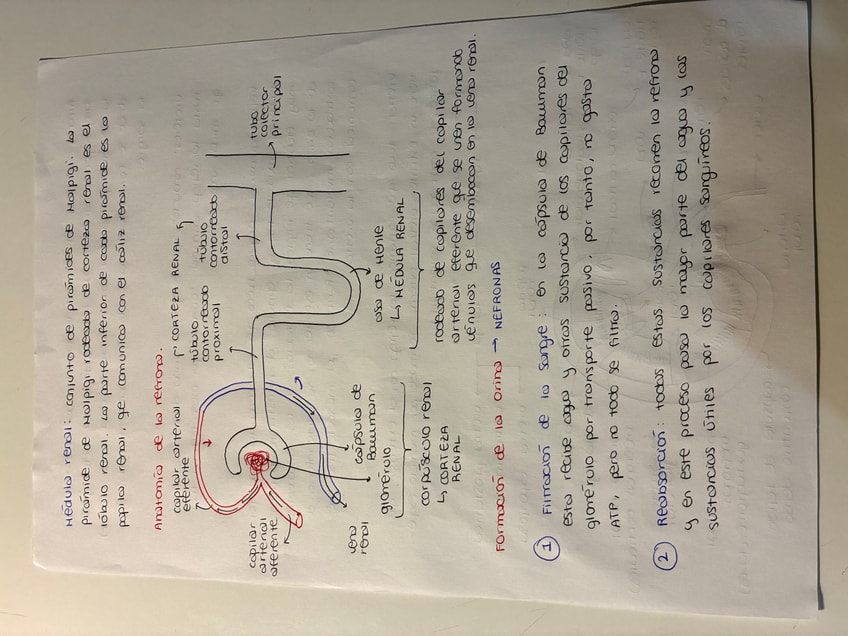 Médula renal: conjunto de pirámides de Malpigi. La
pirámide de Malpigi rodeada de corteza renal es el
lóbulo renal. La parte inferior de cada pirámide es la
papila renal, qe comunica con el cáliz renal.
Anatomía de la nefrona.
capilar arterial
eferente
capilar
arterial
aferente
vena
renal
glomérulo
cápsula de
Bauman
corpúsculo renal
↳ CORTEZA
RENAL
CORTEZA RENAL
túbulo
contorneado
proximal
túbulo
contorneado
distal
tubo
colector
principal
asa de Henle
↳ MÉDULA RENAL
rodeado de capilares del capilar
arterial eferente que se van formando
vénulas qe desembocan en la vena renal.
Formación de la orina → NEFRONAS
1 Filtración de la sangre: en la cápsula de Bauman
esta recibe agua y otras sustancia de los capilares del
glomérulo por transporte pasivo, por tanto, no gasta
ATP, pero no todo se filtra.
2 Reabsorción: todas estas sustancias recorren la nefrona
y en este proceso pasa la mayor parte del agua y las
sustancias útiles por los capilares sanguíneos.